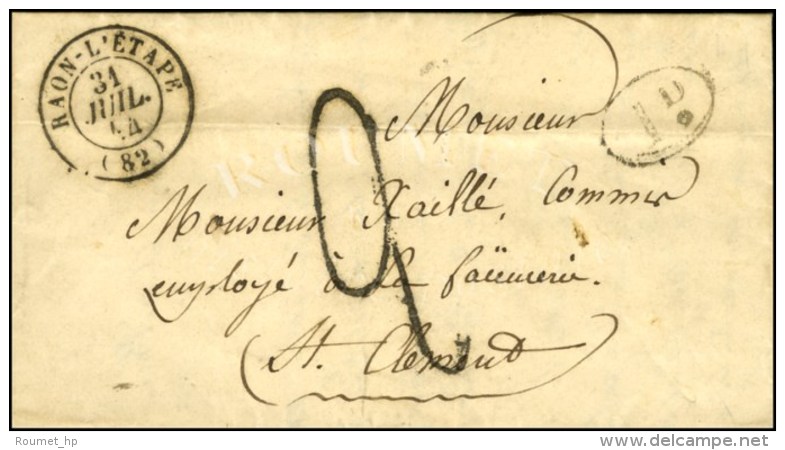 RAON-L'ÉTAPE
31
JUIL.
54
(82)
1 D
2
Monsieur
Monsieur Xaillé, Commis
employé à la faïencerie.
St. Clément
ROUMET
Roumet_hp
delcampe.net